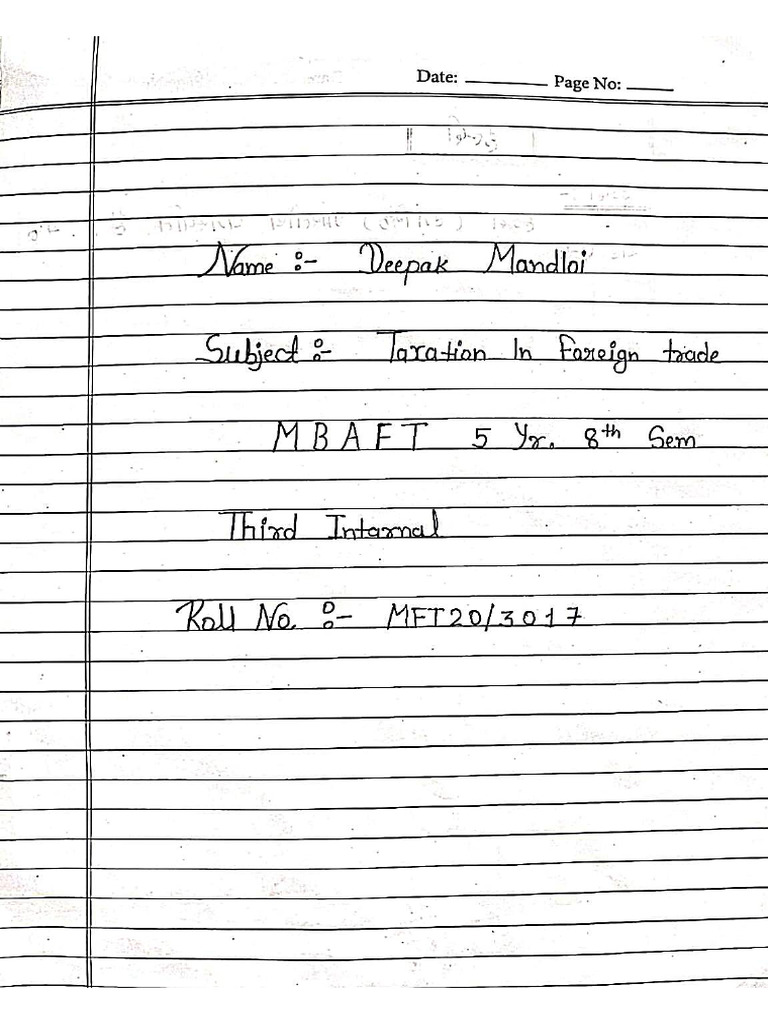 Date: ________ Page No: _____
Name :- Deepak Mandloi
Subject :- Taxation In Foreign trade
MBAFT 5 Yr. 8th Sem
Third Intarnal
Roll No. :- MFT20/3017